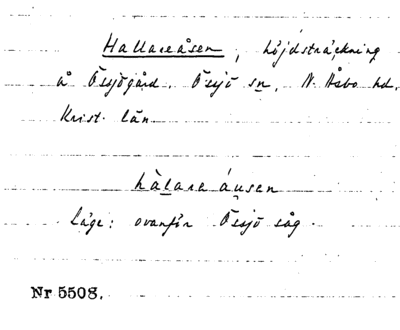 Hallareåsen, höjdsträckning
å Össjögård. Össjö sn, N. Åsbo hd.
Krist. län
hàlare áusen
Läge: ovanför Össjö såg.
Nr 5508.